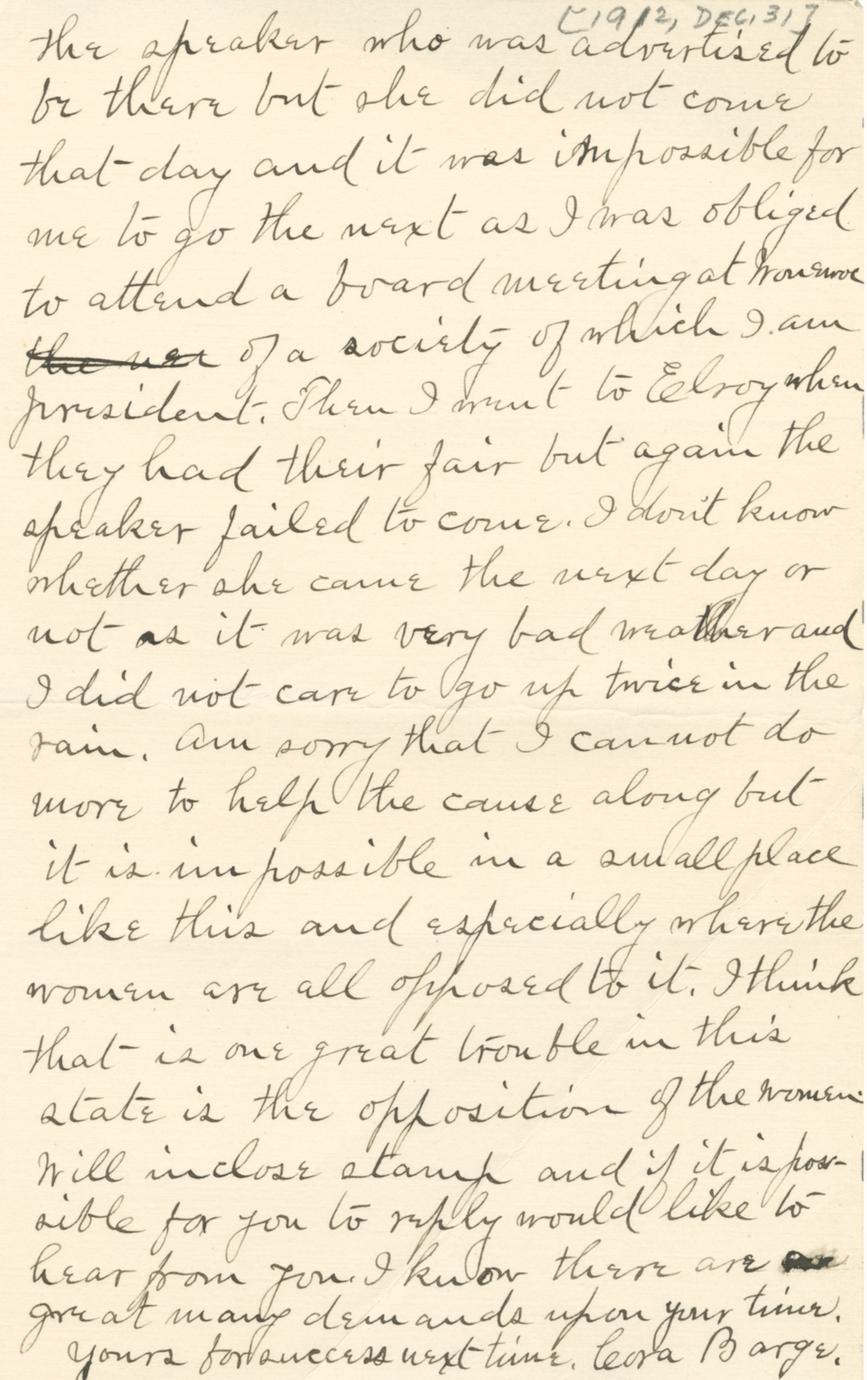 [1912, DEC. 31]
the speaker who was advertised to
be there but she did not come
that day and it was impossible for
me to go the next as I was obliged
to attend a board meeting at Wonewoc
the nex of a society of which I am
president. Then I went to Elroy when
they had their fair but again the
speaker failed to come. I don't know
whether she came the next day or
not as it was very bad weather and
I did not care to go up twice in the
rain. Am sorry that I cannot do
more to help the cause along but
it is impossible in a small place
like this and especially where the
women are all opposed to it. I think
that is one great trouble in this
state is the opposition of the women.
Will inclose stamp and if it is pos-
sible for you to reply would like to
hear from you. I know there are
great many demands upon your time.
Yours for success next time. Cora Barge.